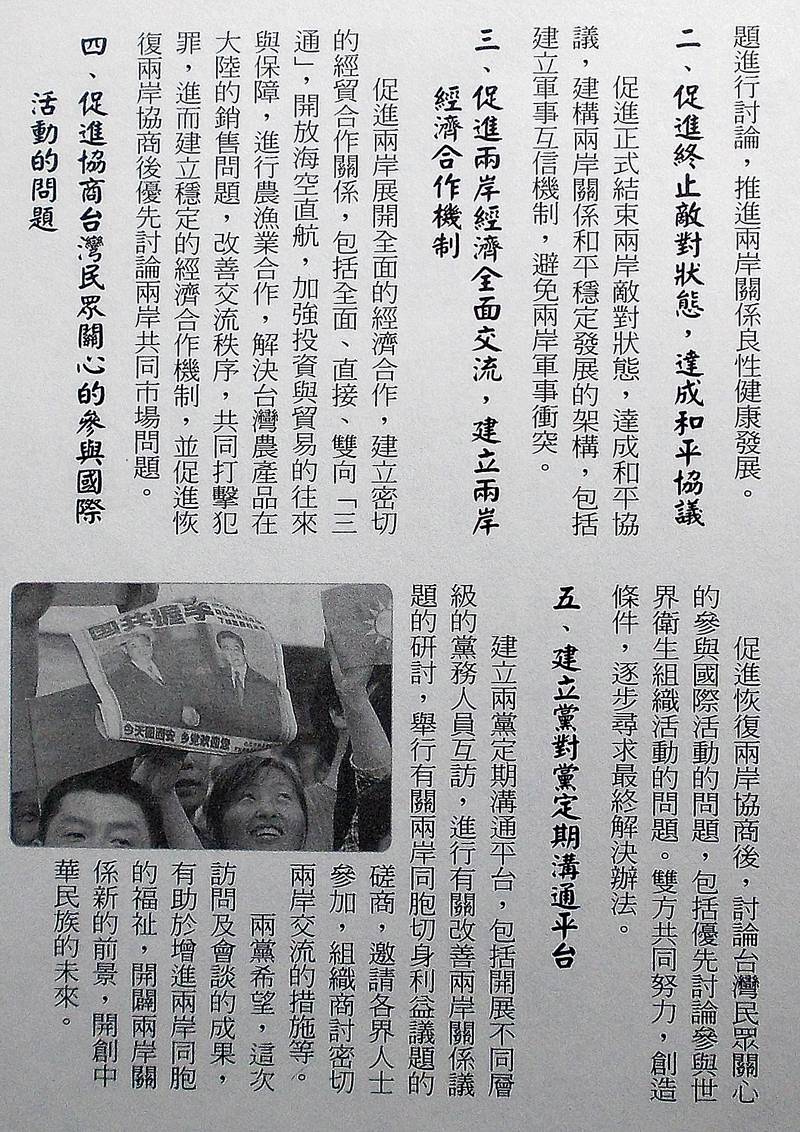 題進行討論，推進兩岸關係良性健康發展。
二、促進終止敵對狀態，達成和平協議
促進正式結束兩岸敵對狀態，達成和平協
議，建構兩岸關係和平穩定發展的架構，包括
建立軍事互信機制，避免兩岸軍事衝突。
三、促進兩岸經濟全面交流，建立兩岸
經濟合作機制
促進兩岸展開全面的經濟合作，建立密切
的經貿合作關係，包括全面、直接、雙向「三
通」，開放海空直航，加強投資與貿易的往來
與保障，進行農漁業合作，解決台灣農產品在
大陸的銷售問題，改善交流秩序，共同打擊犯
罪，進而建立穩定的經濟合作機制，並促進恢
復兩岸協商後優先討論兩岸共同市場問題。
四、促進協商台灣民眾關心的參與國際
活動的問題
促進恢復兩岸協商後，討論台灣民眾關心
的參與國際活動的問題，包括優先討論參與世
界衛生組織活動的問題。雙方共同努力，創造
條件，逐步尋求最終解決辦法。
五、建立黨對黨定期溝通平台
建立兩黨定期溝通平台，包括開展不同層
級的黨務人員互訪，進行有關改善兩岸關係議
題的研討，舉行有關兩岸同胞切身利益議題的
磋商，邀請各界人士
參加，組織商討密切
兩岸交流的措施等。
兩黨希望，這次
訪問及會談的成果，
有助於增進兩岸同胞
的福祉，開闢兩岸關
係新的前景，開創中
華民族的未來。
国共握手